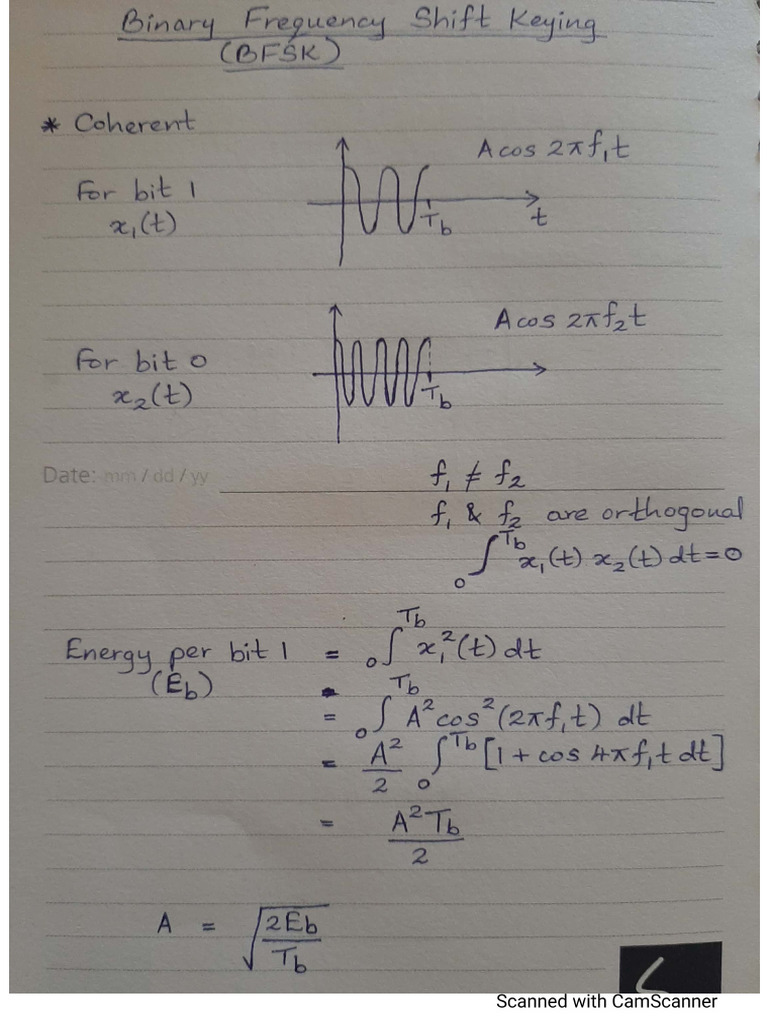 Binary Frequency Shift Keying
(BFSK)
* Coherent
A cos 2πf₁t
For bit 1
x₁(t)
T_b
t
A cos 2πf₂t
For bit 0
x₂(t)
T_b
Date: mm / dd / yy
f₁ ≠ f₂
f₁ & f₂ are orthogonal
₀∫^{T_b} x₁(t) x₂(t) dt = 0
Energy per bit 1 = ₀∫^{T_b} x₁²(t) dt
(E_b)
= ₀∫^{T_b} A² cos² (2πf₁t) dt
= A²/2 ₀∫^{T_b} [1 + cos 4πf₁t dt]
= A² T_b / 2
A = √(2E_b / T_b)
Scanned with CamScanner